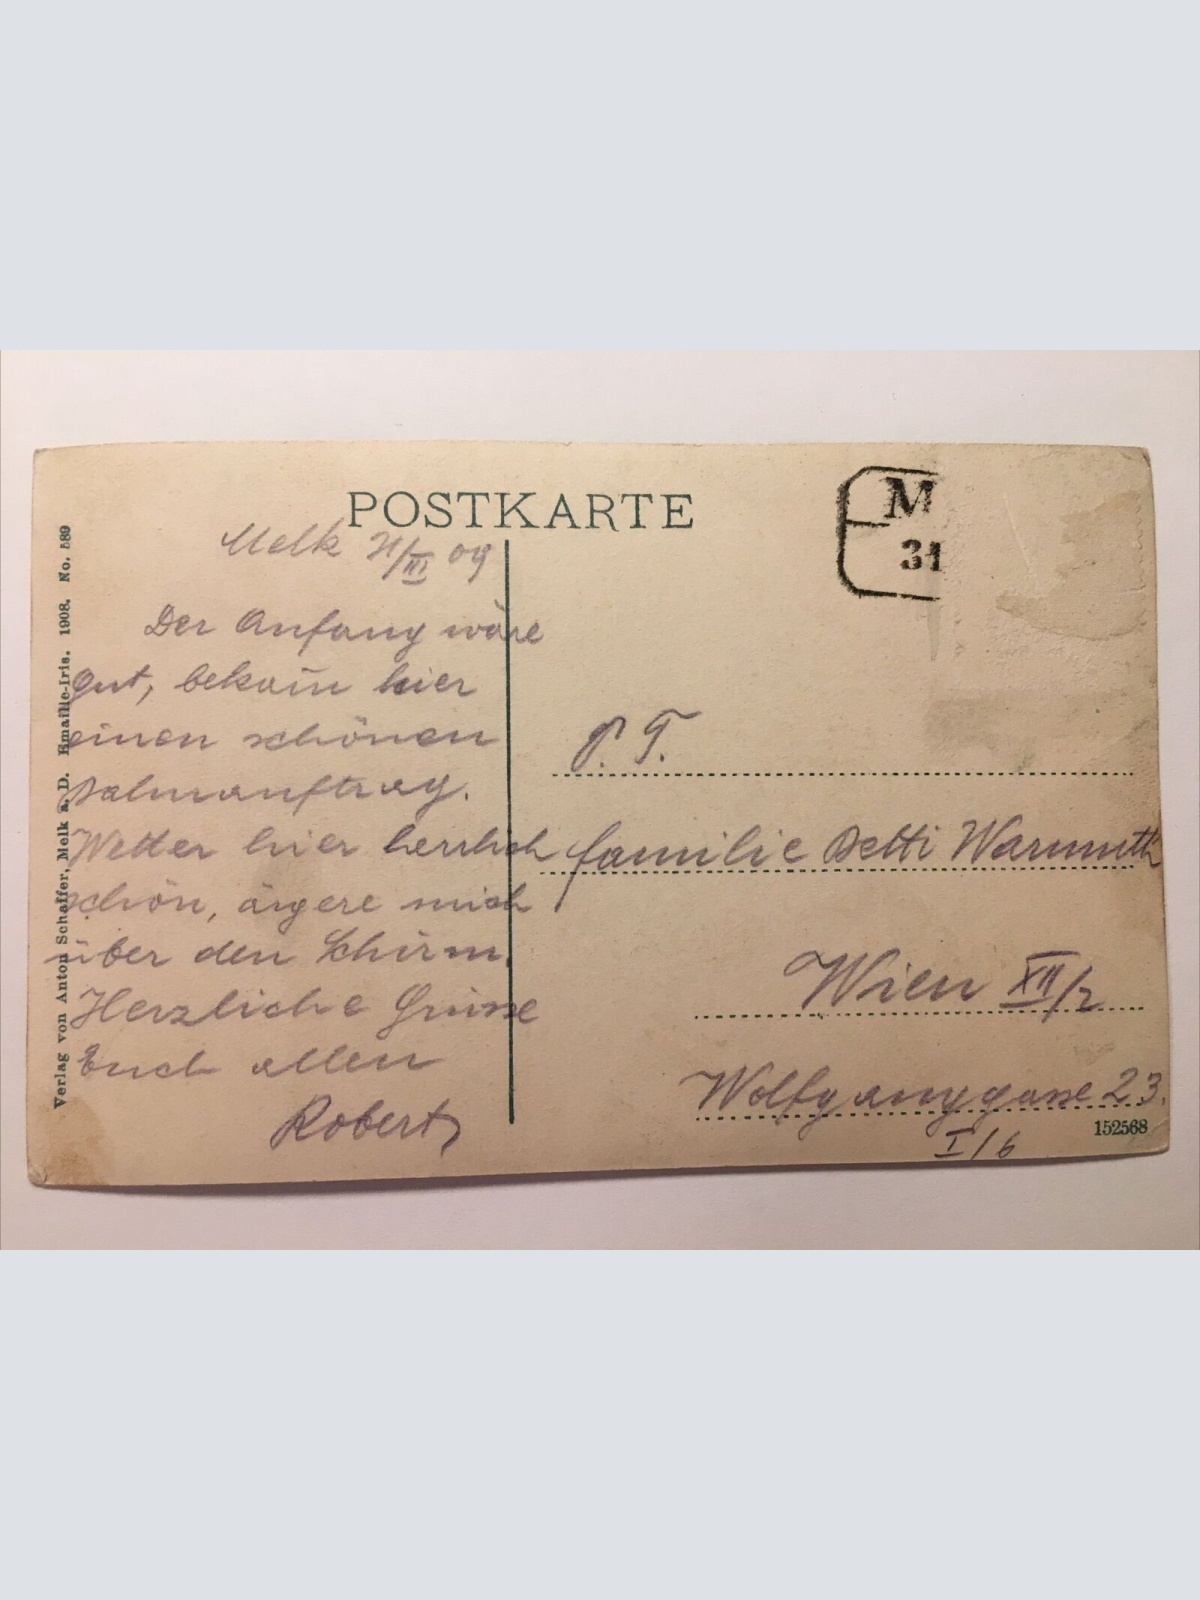 POSTKARTE
Melk 31/III 09
Der Anfang wäre
gut, bekam̄ hier
einen schönen
Wetter hier herrlich
schön, ärgere mich
über den Schirm.
Herzliche Grüsse
Euch allen
Robert
Verlag von Anton Schaffer, Melk a. D. Emaille-Iris. 1908. No. 589
M
31
P. T.
familie Detti Warmuth
Wien XII/2
Wolfganggasse 23.
I/6
152568